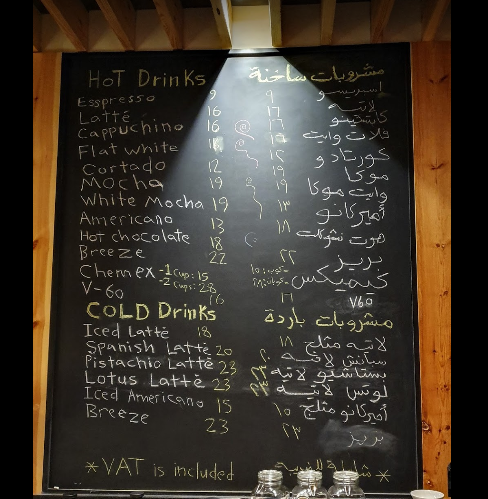 HoT Drinks
Esspresso 9
Latte 16
Cappuchino 16
Flat white
Cortado 12
Mocha 19
White Mocha 19
Americano 13
Hot chocolate 18
Breeze 22
Chemex -1 Cup: 15
-2 Cups: 28
V-60 16
COLD Drinks
Iced Latte 18
Spanish Latte 20
Pistachio Latte 23
Lotus Latte 23
Iced Americano 15
Breeze 23
*VAT is included
مشروبات ساخنة
٩
لاتيه ١٦
١٦
فلات وايت
كورتادو ١٢
موكا ١٩
وايت موكا ١٩
أميركانو ١٣
هوت شوكلت ١٨
بريز ٢٢
كيميكس
V60 ١٦
مشروبات باردة
لاتيه مثلج ١٨
سبانش لاتيه ٢٠
بستاشيو لاتيه ٢٣
لوتس لاتيه ٢٣
أميركانو مثلج ١٥
بريز ٢٣